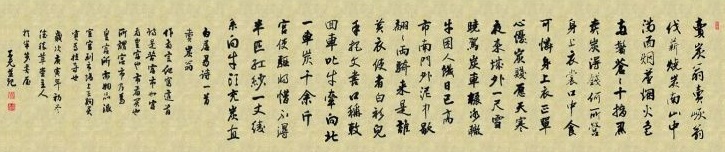 賣炭翁賣炭翁
伐薪燒炭南山中
滿面塵灰煙火色
兩鬢蒼蒼十指黑
賣炭得錢何所營
身上衣裳口中食
可憐身上衣正單
心憂炭賤願天寒
夜來城外一尺雪
曉駕炭車輾冰轍
牛困人飢日已高
市南門外泥中歇
翩翩兩騎來是誰
黃衣使者白衫兒
手把文書口稱敕
回車叱牛牽向北
一車炭千餘斤
宮使驅將惜不得
半匹紅紗一丈綾
系向牛頭充炭直
白居易詩一首
賣炭翁